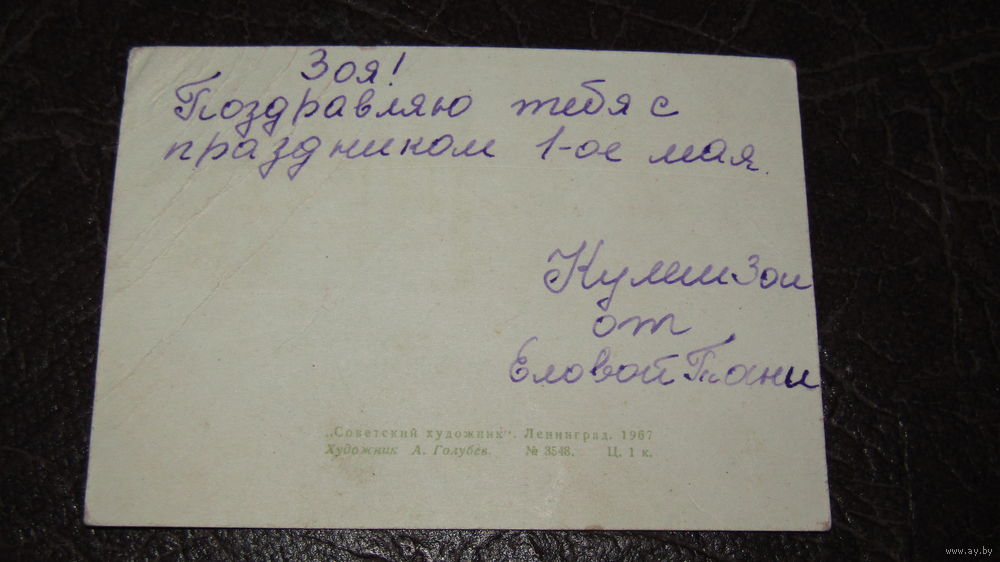 Зоя!
Поздравляю тебя с
праздником 1-ое мая.
Кулеш Зои
от
Еловой Тани
„Советский художник“. Ленинград. 1967
Художник А. Голубев. № 3548. Ц. 1 к.
www.ay.by